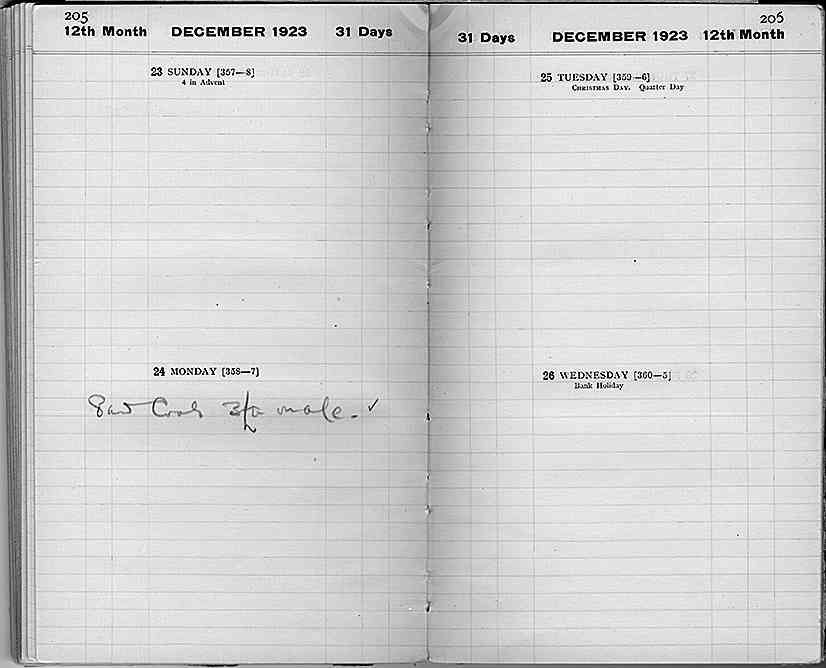 205
12th Month DECEMBER 1923 31 Days
23 SUNDAY [357—8]
4 in Advent
24 MONDAY [358—7]
male. ✓
206
31 Days DECEMBER 1923 12th Month
25 TUESDAY [359—6]
CHRISTMAS DAY. Quarter Day
26 WEDNESDAY [360—5]
Bank Holiday